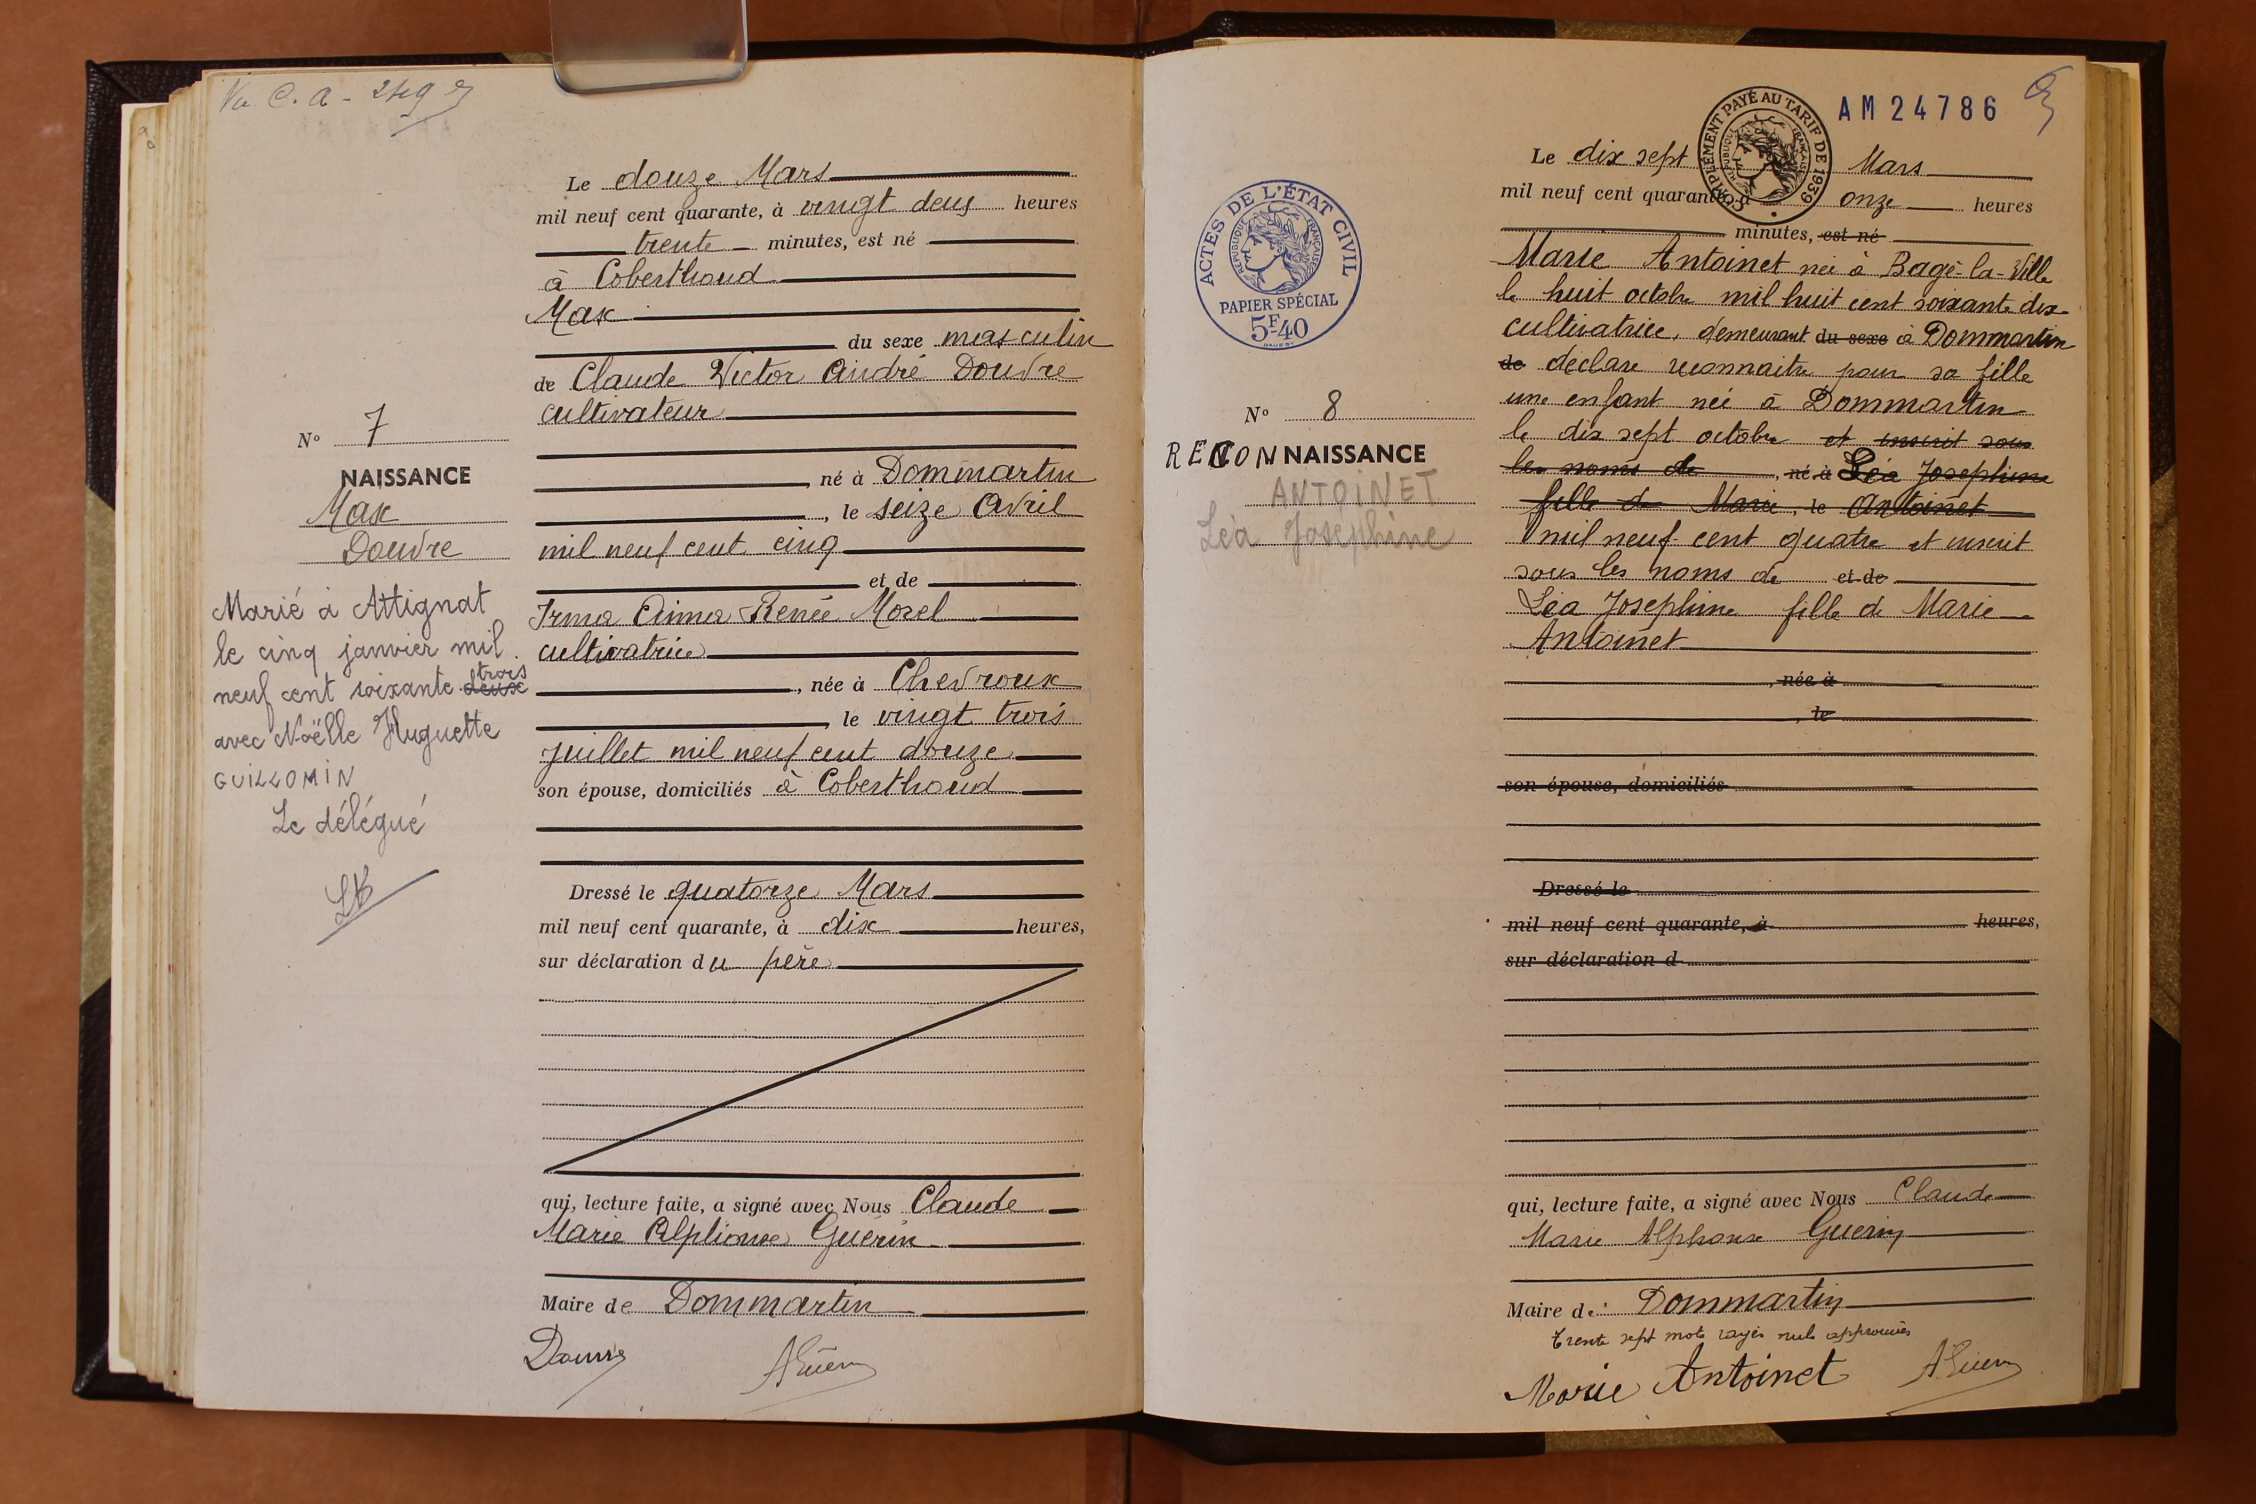 Le douze Mars
mil neuf cent quarante, à vingt deux heures
trente minutes, est né
à Coberthoud
Max
du sexe masculin
de Claude Victor André Douvre
cultivateur
né à Dommartin
, le seize Avril
mil neuf cent cinq
et de
Irma Anna Renée Morel
cultivatrice
, née à Chevroux
, le vingt trois
Juillet mil neuf cent douze
son épouse, domiciliés à Coberthoud
Dressé le quatorze Mars
mil neuf cent quarante, à dix heures,
sur déclaration du père
qui, lecture faite, a signé avec Nous Claude
Marie Alphonse Guérin
Maire de Dommartin
Douvre
AGuérin
N° 7
NAISSANCE
Max
Douvre
Marié à Attignat
le cinq janvier mil
neuf cent soixante deux trois
avec Noëlle Huguette
GUILLOMIN
Le délégué
AM 24786
COMPLÉMENT PAYÉ AU TARIF DE 1939
RÉPUBLIQUE FRANÇAISE
ACTES DE L'ÉTAT CIVIL
RÉPUBLIQUE FRANÇAISE
PAPIER SPÉCIAL
5F40
N° 8
RECONNAISSANCE
ANTOINET
Léa Joséphine
Le dix sept Mars
mil neuf cent quarante, à onze heures
minutes, est né
Marie Antoinet née à Bagé-la-Ville
le huit octobre mil huit cent soixante dix
cultivatrice, demeurant du sexe à Dommartin
de déclare reconnaitre pour sa fille
une enfant née à Dommartin
le dix sept octobre et inscrit sous
les noms de , né à Léa Josephine
fille de Marie, le Antoinet
mil neuf cent quatre et inscrit
sous les noms de et de
Léa Josephine fille de Marie
Antoinet
, née à
, le
son épouse, domiciliés
Dressé le
mil neuf cent quarante, à heures,
sur déclaration d
qui, lecture faite, a signé avec Nous Claude
Marie Alphonse Guerin
Maire de Dommartin
Trente sept mots rayés nuls approuvés
Marie Antoinet
AGuérin